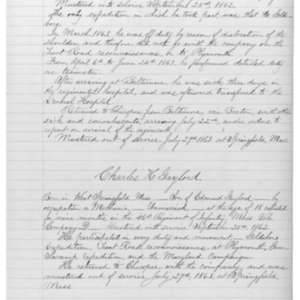 Mustered into service September 25th 1862.
The only expedition in which he took part was that to Golds-
boro.
In March 1863 he was off duty by reason of dislocation of the
shoulder, and therefore did not go with the company on the
Trent Road reconnaissance, or to Plymouth.
From April 6th to June 24th 1863 he performed detailed duty
as teamster.
After arriving at Baltimore he was sick three days in
the regimental hospital, and was afterward transferred to the
Hospital.
Returned to Chicopee from Baltimore, via Boston, with other
sick and convalescents, arriving July 22nd, under orders to
report on arrival of the regiment.
Mustered out of service July 29th 1863 at Springfield, Mass.
Charles H. Gaylord.
Born in West Springfield Mass. Son of Edmund Gaylord. By
occupation a Unmarried. At the age of 18 enlisted
for nine months in the 46th Regiment of Infantry, Mass. Vol.
Company D. Mustered into service September 25th 1862.
He participated in every duty and movement. Goldsboro
Expedition, Trent Road reconnaissance, at Plymouth, Gum
Swamp expedition and the Maryland Campaign.
He returned to Chicopee with the company, and was
mustered out of service July 29th, 1863, at Springfield,
Mass.